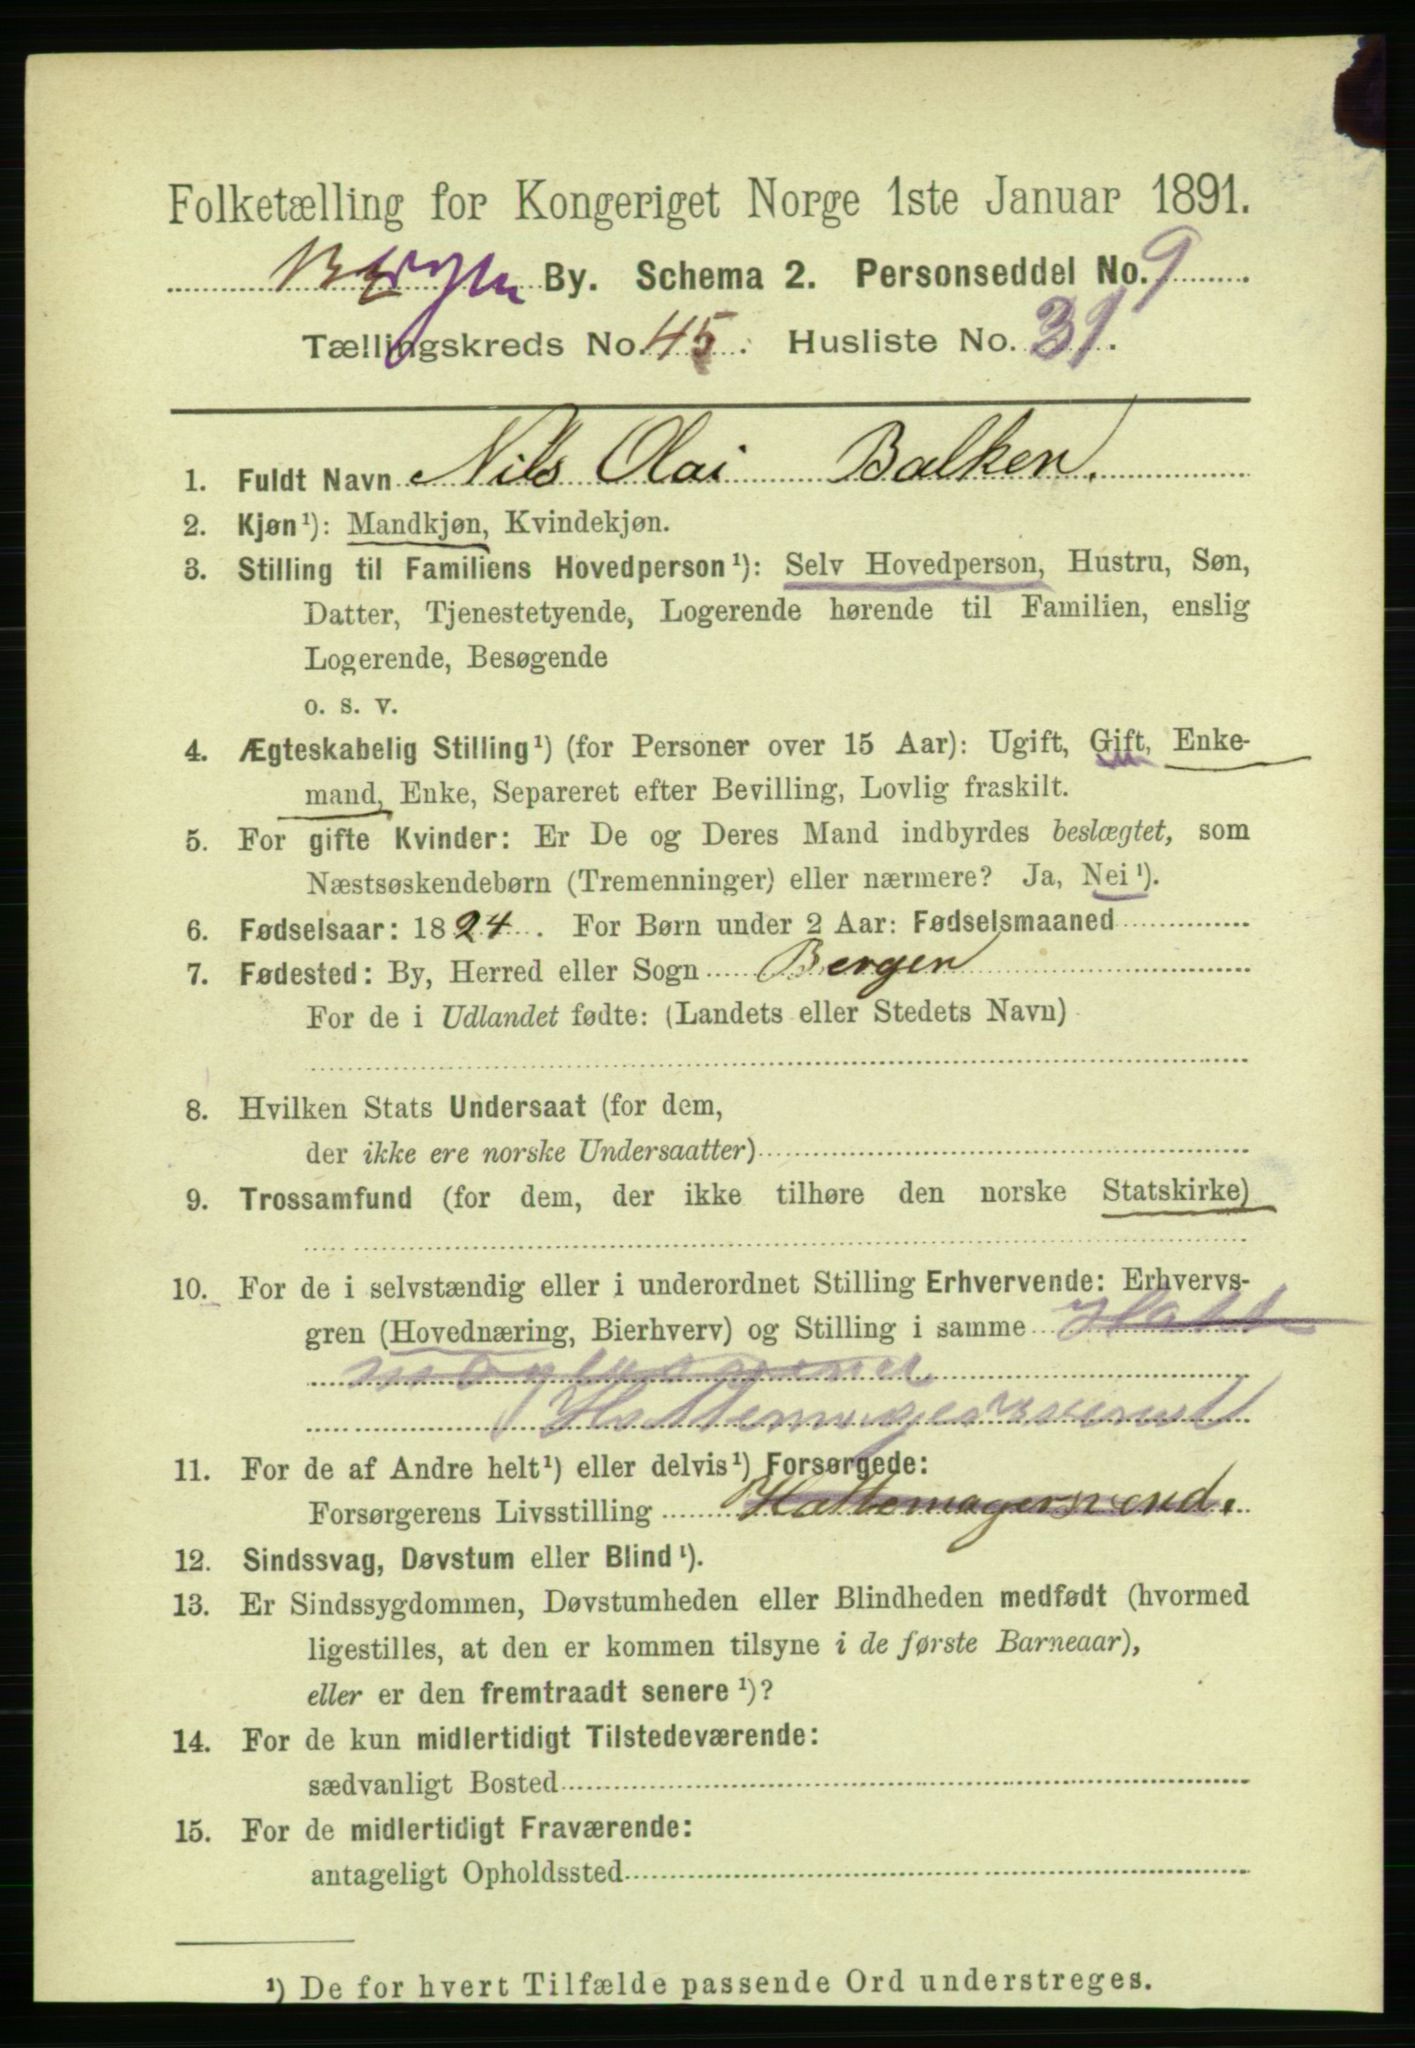 Folketælling for Kongeriget Norge 1ste Januar 1891.
Bergen By. Schema 2. Personseddel No. 9
Tællingskreds No. 45. Husliste No. 31.
1. Fuldt Navn Nils Olai Balken.
2. Kjøn¹): Mandkjøn, Kvindekjøn.
3. Stilling til Familiens Hovedperson¹): Selv Hovedperson, Hustru, Søn,
Datter, Tjenestetyende, Logerende hørende til Familien, enslig
Logerende, Besøgende
o. s. v.
4. Ægteskabelig Stilling¹) (for Personer over 15 Aar): Ugift, Gift, Enke-
mand, Enke, Separeret efter Bevilling, Lovlig fraskilt.
5. For gifte Kvinder: Er De og Deres Mand indbyrdes beslægtet, som
Næstsøskendebørn (Tremenninger) eller nærmere? Ja, Nei¹).
6. Fødselsaar: 1824. For Børn under 2 Aar: Fødselsmaaned
7. Fødested: By, Herred eller Sogn Bergen
For de i Udlandet fødte: (Landets eller Stedets Navn)
8. Hvilken Stats Undersaat (for dem,
der ikke ere norske Undersaatter)
9. Trossamfund (for dem, der ikke tilhøre den norske Statskirke)
10. For de i selvstændig eller i underordnet Stilling Erhvervende: Erhvervs-
gren (Hovednæring, Bierhverv) og Stilling i samme
Hattemagersvend
11. For de af Andre helt¹) eller delvis¹) Forsørgede:
Forsørgerens Livsstilling Hattemagersvend.
12. Sindssvag, Døvstum eller Blind¹).
13. Er Sindssygdommen, Døvstumheden eller Blindheden medfødt (hvormed
ligestilles, at den er kommen tilsyne i de første Barneaar),
eller er den fremtraadt senere¹)?
14. For de kun midlertidigt Tilstedeværende:
sædvanligt Bosted
15. For de midlertidigt Fraværende:
antageligt Opholdssted
¹) De for hvert Tilfælde passende Ord understreges.